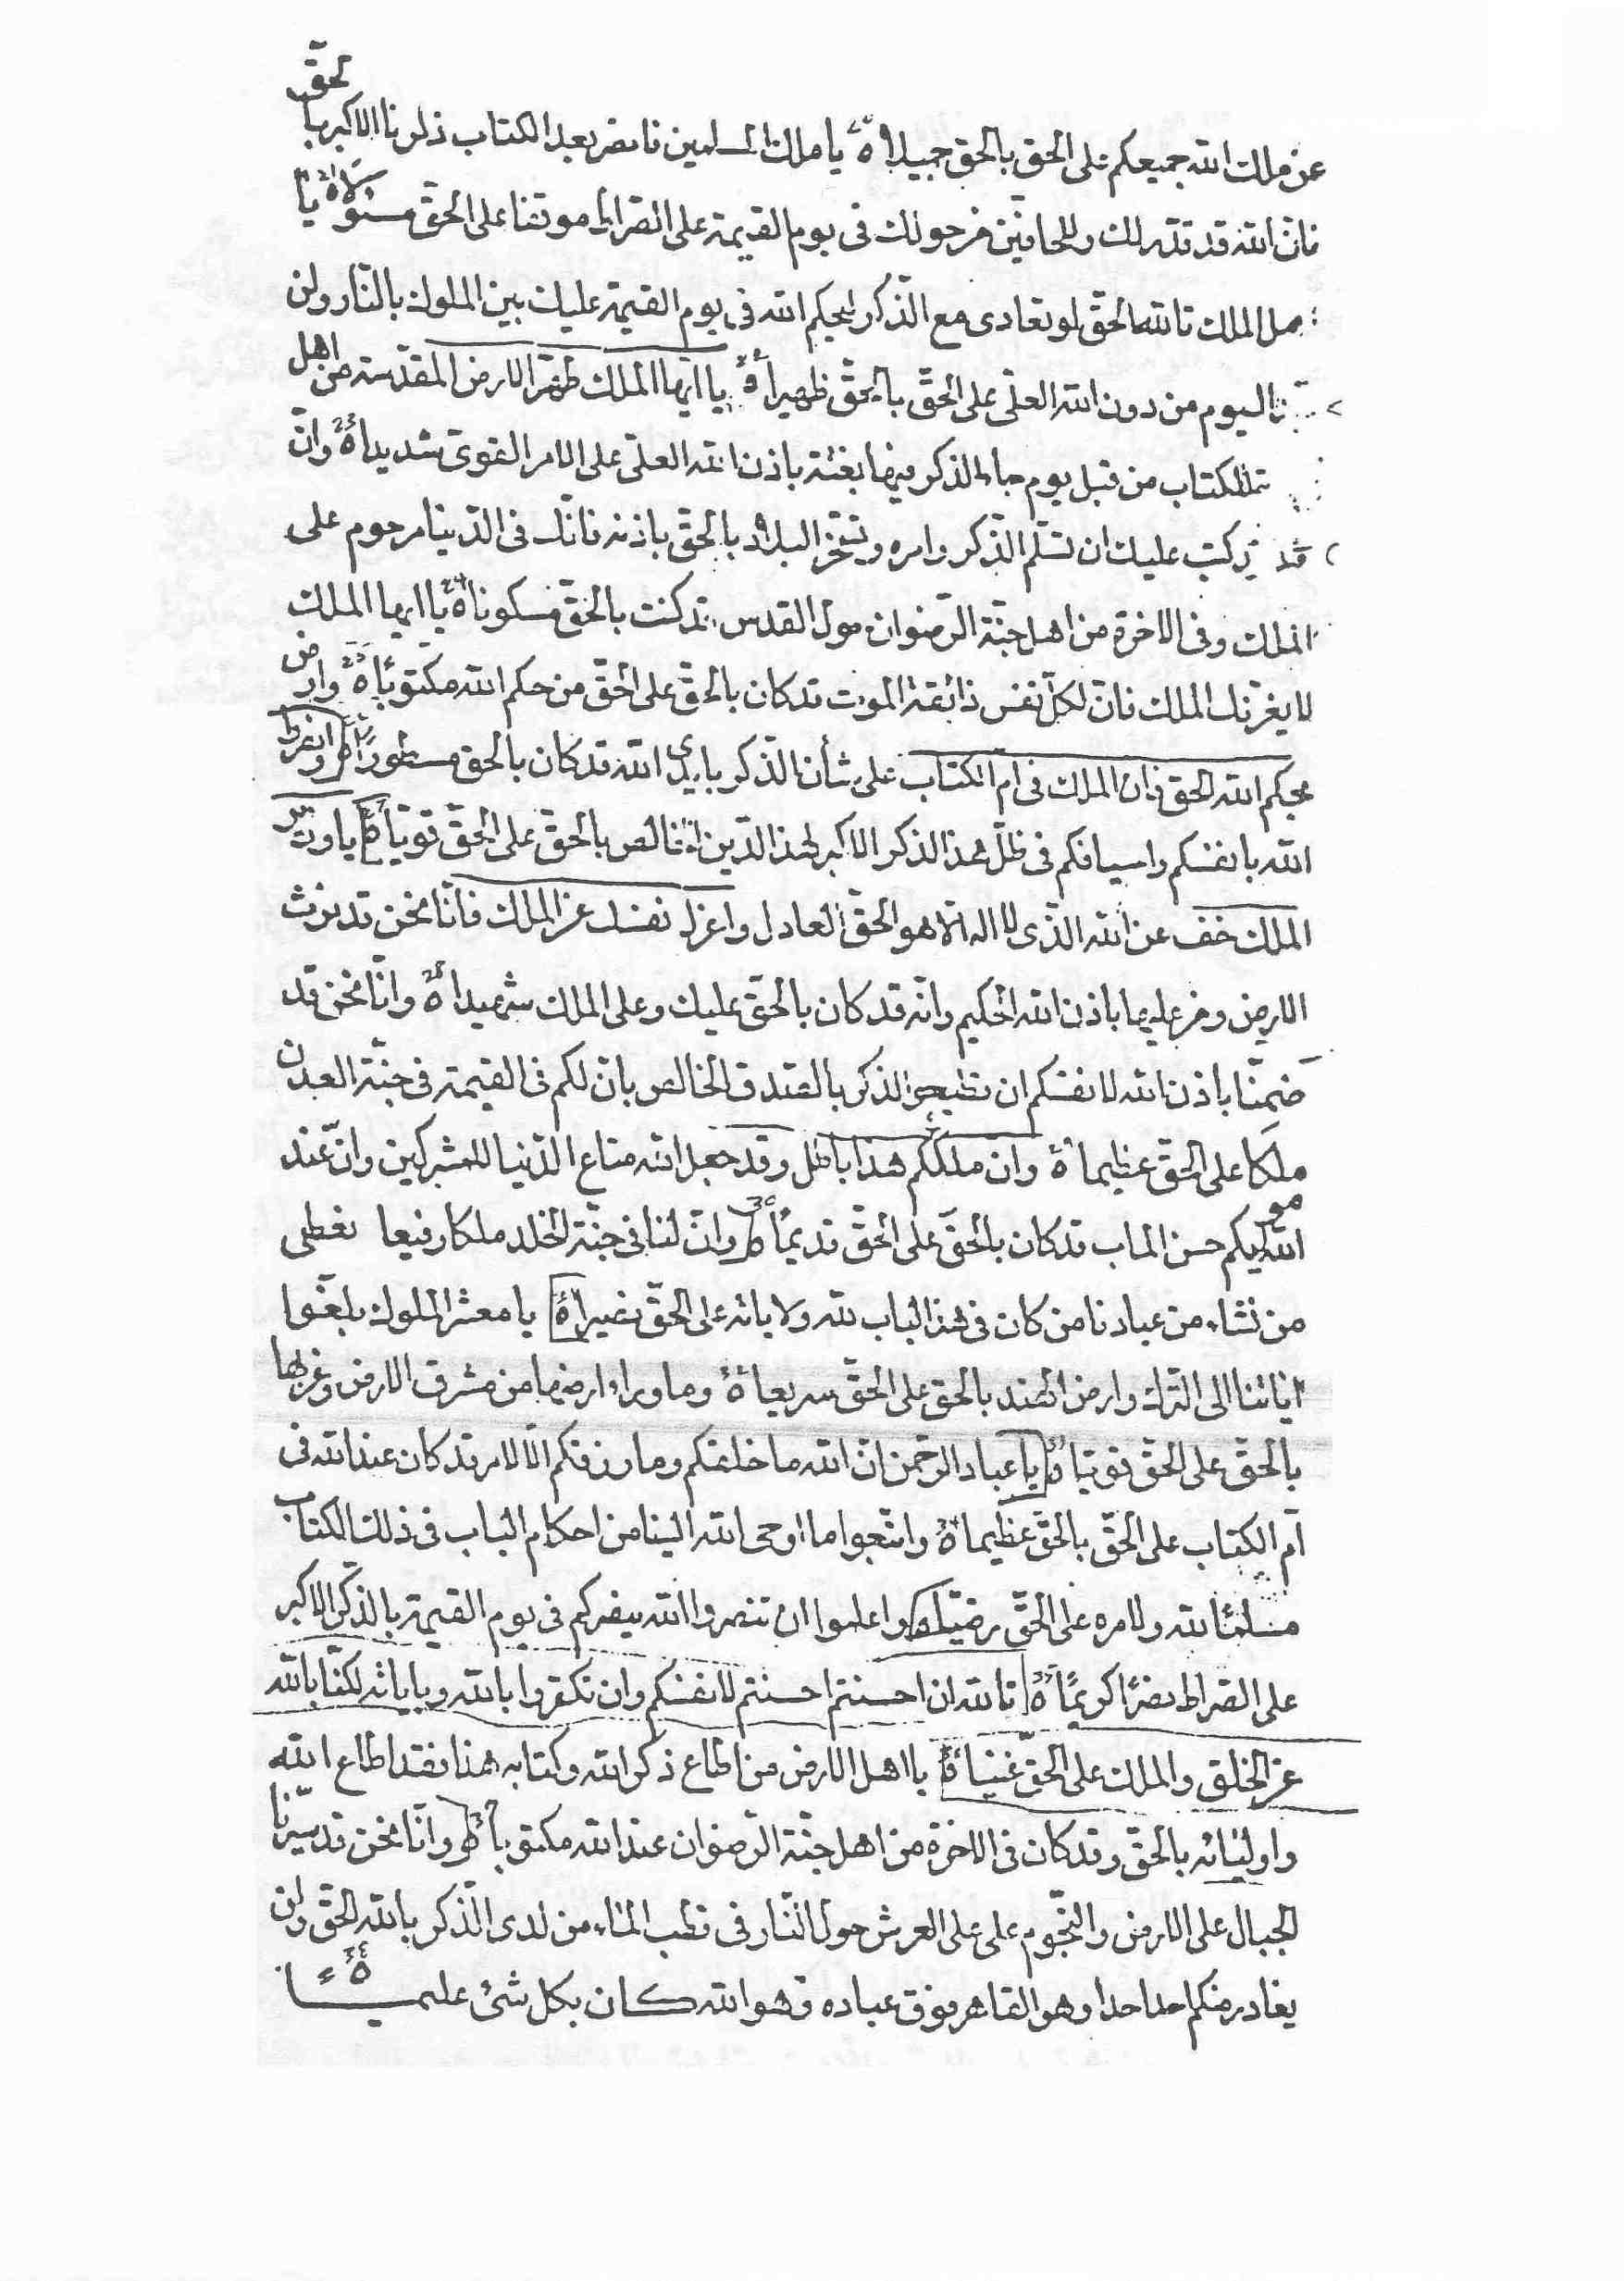 عن ملك الله جميعكم على الحق بالحق جميلا ه يا ملك المسلمين فانصر بعد الكتاب ذكرنا الاكبر بالحقّ
فانّ الله قد قدّر لك وللحافّين من حولك فى يوم القيمة على الصّراط موقفا على الحقّ مسئولا ه يا
الملك تالله الحقّ لو تعادى مع الذّكر ليحكم الله فى يوم القيمة عليك بين الملوك بالنّار ولن
اليوم من دون الله العلىّ على الحقّ بالحقّ ظهيرا ه يا ايّها الملك طهّر الارض المقدّسة من اهل
الكتاب من قبل يوم جاء الذكر فيها بغتة باذن الله العلىّ على الامر القوىّ شديدا ه وانّ
قد كتب عليك ان تسلّم الذّكر وامره وتسخّر البلاد بالحقّ باذنه فانّك فى الدّنيا مرحوم على
الملك وفى الاخرة من اهل جنّة الرّضوان حول القدس قد كنت بالحقّ مسكونا ه يا ايها الملك
لا يغرّنك الملك فانّ لكلّ نفس ذائقة الموت قد كان بالحقّ على الحقّ من حكم الله مكتوبا ه وارض
بحكم الله الحق فان الملك فى ام الكتاب على شأن الذّكر بايدى الله قد كان بالحق مسطورا ه وانصروا
الله بانفسكم واسيافكم فى ظلّ هذا الذكر الاكبر لهذا الدّين الخالص بالحقّ على الحقّ قويّا ه يا وزير
الملك خف عن الله الذّى لا اله الّا هو الحقّ العادل واعزل نفسك عن الملك فانّا نحن قد نرث
الارض ومن عليها باذن الله الحكيم وانّه قد كان بالحقّ عليك وعلى الملك شهيدا ه وانّا نحن قد
ضمنّا باذن الله لانفسكم ان تطيعوا الذكر بالصّدق الخالص بان لكم فى القيمة فى جنّة العدن
ملكا على الحقّ عظيما ه وان ملككم هذا باطل وقد جعل الله متاع الدّنيا للمشركين وانّ عند
الله موليكم حسن الماب قد كان بالحقّ على الحقّ قديما ه وانّ لنا فى جنّة الخلد ملكا رفيعا نعطى
من نشاء من عبادنا من كان فى هذا الباب لله ولاياته على الحقّ نصيرا ه يا معشر الملوك بلّغوا
اياتنا الى التّرك وارض الهند بالحق على الحقّ سريعا ه وما وراء ارضهما من مشرق الارض وغربها
بالحقّ على الحقّ قويّا ه يا عباد الرّحمن انّ الله ما خلقكم وما رزقكم الّا لامر قد كان عند الله فى
امّ الكتاب على الحقّ بالحقّ عظيما ه واتّبعوا ما اوحى الله الينا من احكام الباب فى ذلك الكتاب
مسلّما لله ولامره على الحقّ رضيّا ه واعلموا ان تنصروا الله ينصركم فى يوم القيمة بالذّكر الاكبر
على الصّراط نصرا كريما ه تالله ان احسنتم احسنتم لانفسكم وان تكفروا بالله وباياته لكنّا بالله
عن الخلق والملك على الحقّ غنيا ه يا اهل الارض من اطاع ذكر الله وكتابه هذا فقد اطاع الله
واوليائه بالحقّ وقد كان فى الاخرة من اهل جنّة الرّضوان عند الله مكتوبا ه وانّا نحن قد سيّرنا
الجبال على الارض والنّجوم على على العرش حول النّار فى قطب الماء من لدى الذّكر بالله الحقّ ولن
يغادر منكم احدا وهو القاهر فوق عباده وهو الله كان بكل شئ عليما ه